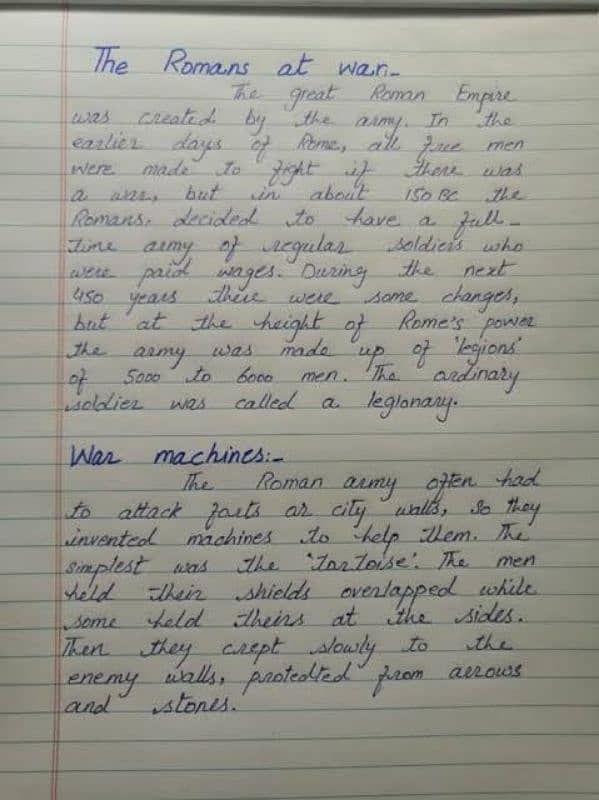 The Romans at war-
The great Roman Empire
was created by the army. In the
earlier days of Rome, all free men
were made to fight if there was
a war, but in about 150 BC the
Romans, decided to have a full-
time army of regular soldiers who
were paid wages. During the next
450 years there were some changes,
but at the height of Rome's power
the army was made up of 'legions'
of 5000 to 6000 men. The ordinary
soldier was called a legionary.
War machines:-
The Roman army often had
to attack forts or city walls, so they
invented machines to help them. The
simplest was the 'Tortoise'. The men
held their shields overlapped while
some held theirs at the sides.
Then they crept slowly to the
enemy walls, protedted from arrows
and stones.